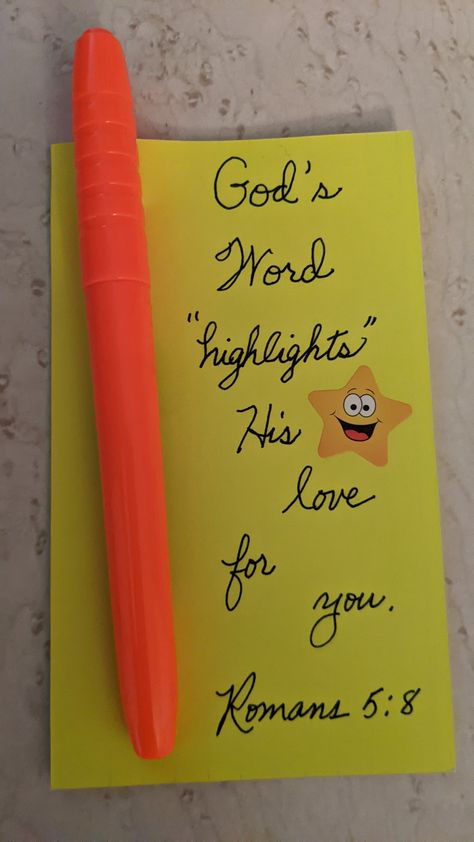 God's
Word
"highlights"
His
love
for
you.
Romans 5:8